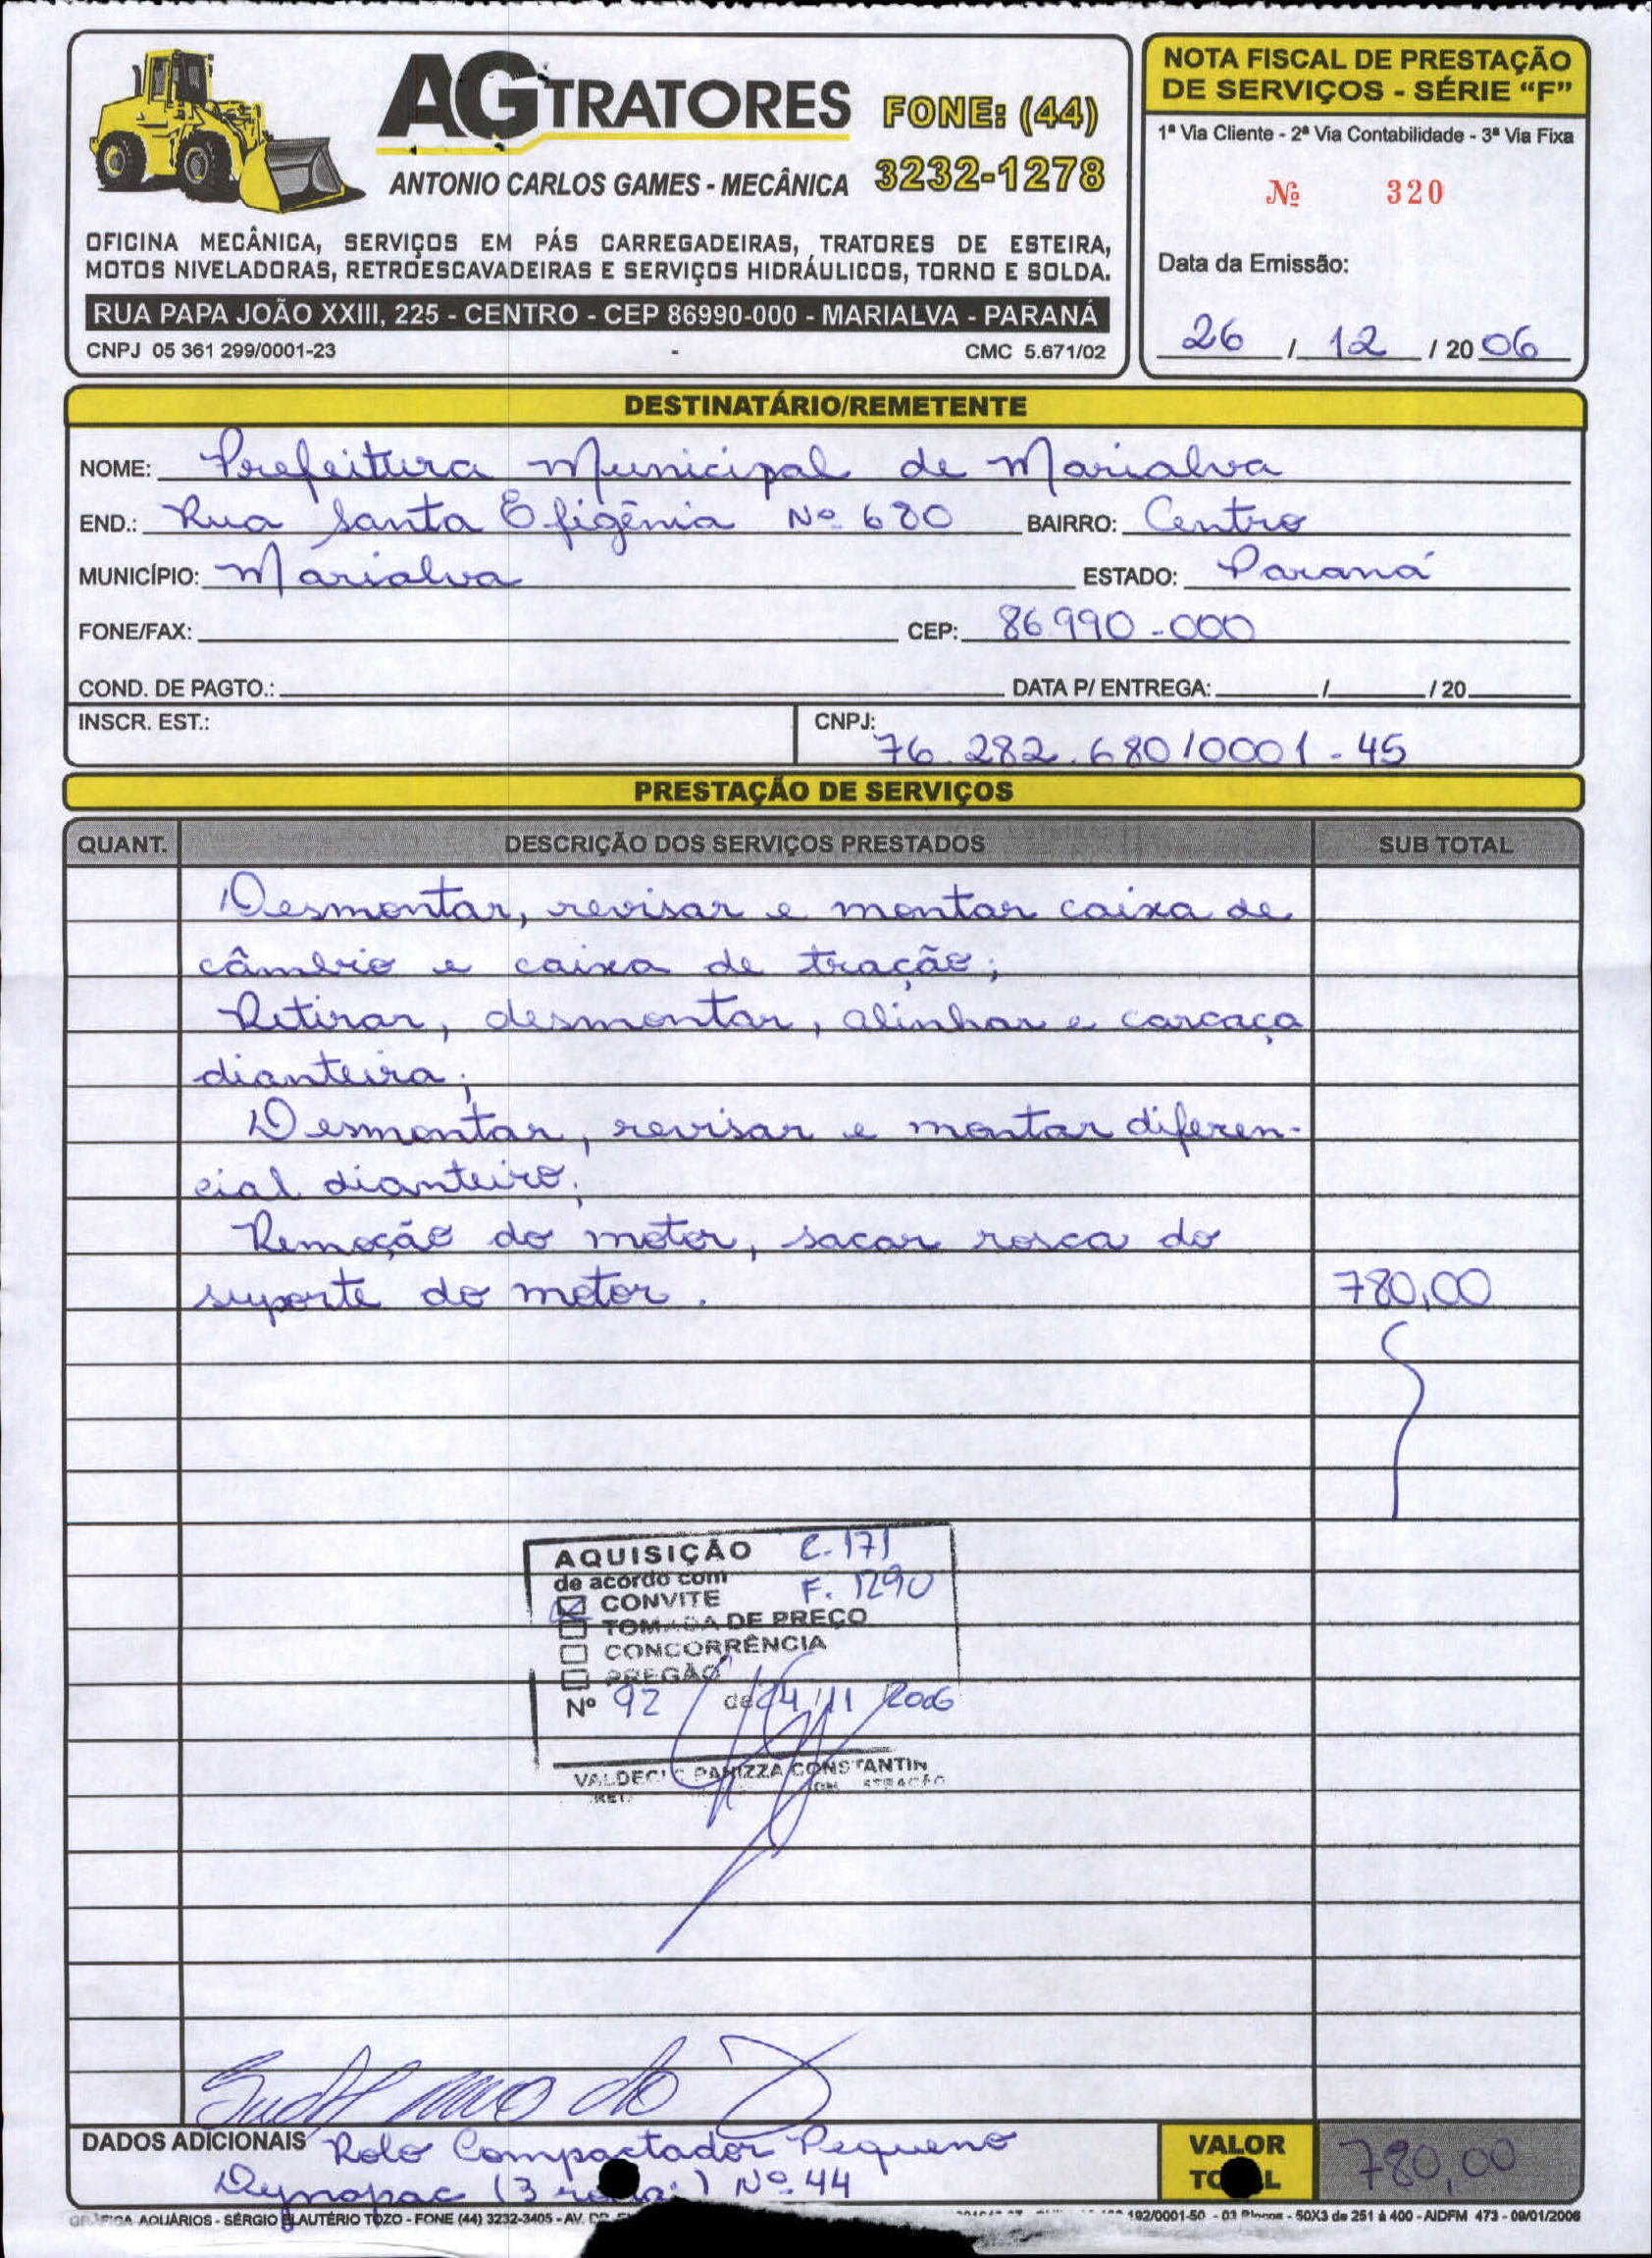 AG TRATORES
FONE: (44)
3232-1278
ANTONIO CARLOS GAMES - MECÂNICA
OFICINA MECÂNICA, SERVIÇOS EM PÁS CARREGADEIRAS, TRATORES DE ESTEIRA,
MOTOS NIVELADORAS, RETROESCAVADEIRAS E SERVIÇOS HIDRÁULICOS, TORNO E SOLDA.
RUA PAPA JOÃO XXIII, 225 - CENTRO - CEP 86990-000 - MARIALVA - PARANÁ
CNPJ 05 361 299/0001-23 - CMC 5.671/02
NOTA FISCAL DE PRESTAÇÃO
DE SERVIÇOS - SÉRIE “F”
1ª Via Cliente - 2ª Via Contabilidade - 3ª Via Fixa
Nº 320
Data da Emissão:
26 / 12 / 20 06
DESTINATÁRIO/REMETENTE
NOME: Prefeitura Municipal de Marialva
END.: Rua Santa Efigênia Nº 680 BAIRRO: Centro
MUNICÍPIO: Marialva ESTADO: Paraná
FONE/FAX: CEP: 86.990-000
COND. DE PAGTO.: DATA P/ ENTREGA: / / 20
INSCR. EST.: CNPJ: 76.282.680/0001-45
PRESTAÇÃO DE SERVIÇOS
QUANT. DESCRIÇÃO DOS SERVIÇOS PRESTADOS SUB TOTAL
Desmontar, revisar e montar caixa de
câmbio e caixa de tração;
Retirar, desmontar, alinhar e carcaça
dianteira;
Desmontar, revisar e montar diferen-
cial dianteiro;
Remoção do motor, sacar rosca do
suporte do motor. 780,00
AQUISIÇÃO C. 171
de acordo com F. 1290
CONVITE
TOMADA DE PREÇO
CONCORRÊNCIA
PREGÃO
Nº 92 de 24/11/2006
VALDECI PANIZZA CONSTANTIN
DADOS ADICIONAIS Rolo Compactador Pequeno
Dynapac (3 rodas) Nº 44
VALOR
TOTAL 780,00
GRÁFICA AQUÁRIOS - SÉRGIO ELAUTÉRIO TOZO - FONE (44) 3232-3405 - AV. 192/0001-50 - 03 Blocos - 50X3 de 251 à 400 - AIDFM 473 - 09/01/2006